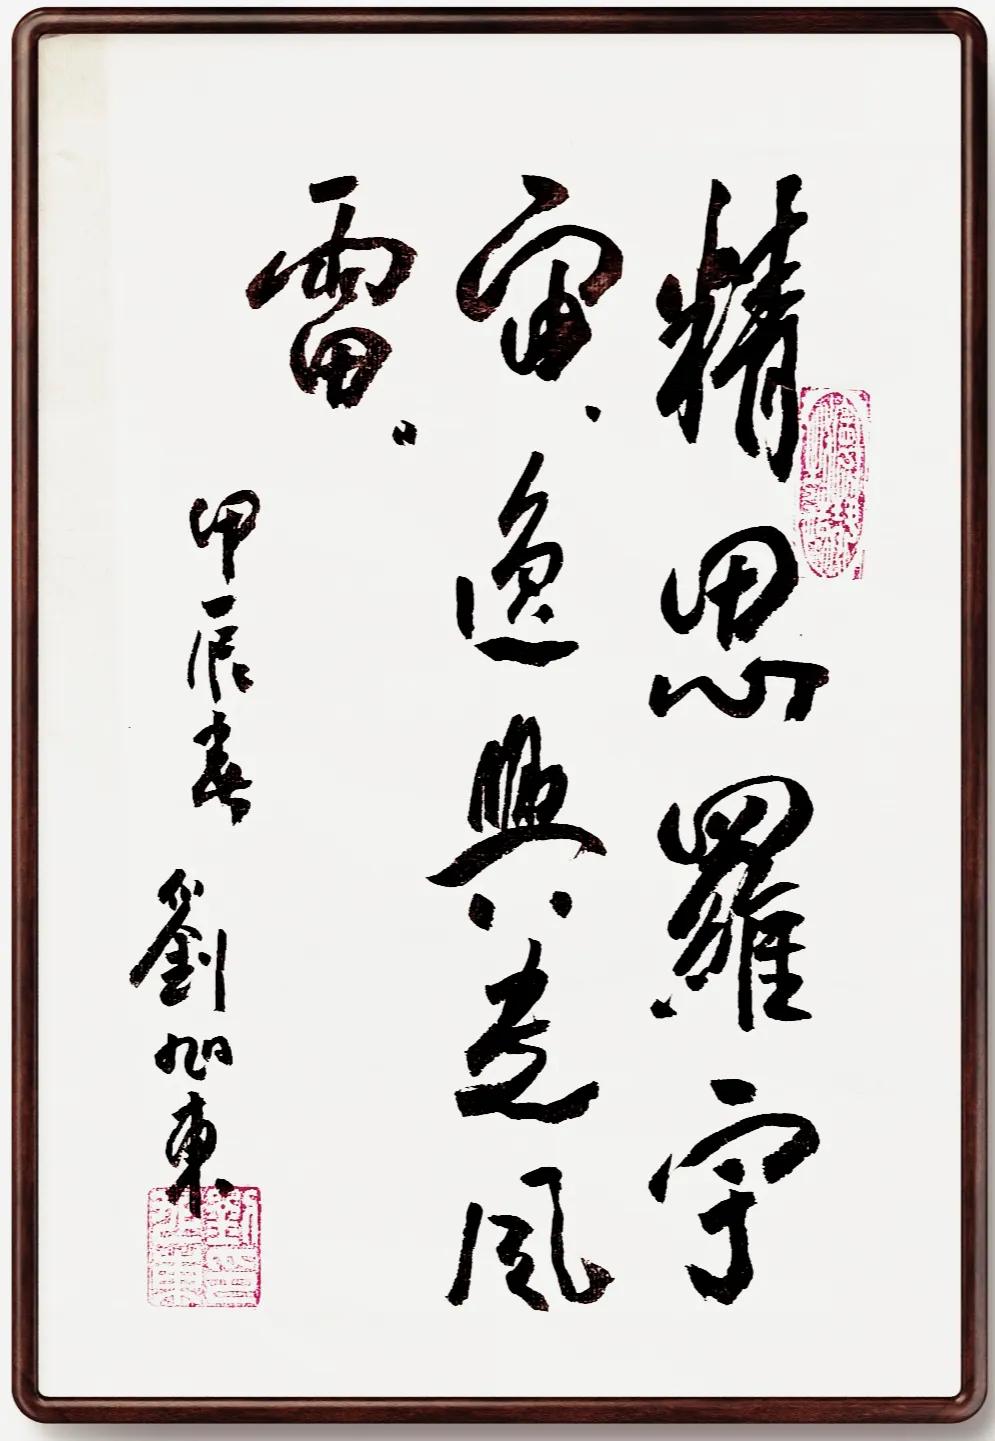 精思羅宇
宙、逸興走風
雷。
甲辰春 劉旭東